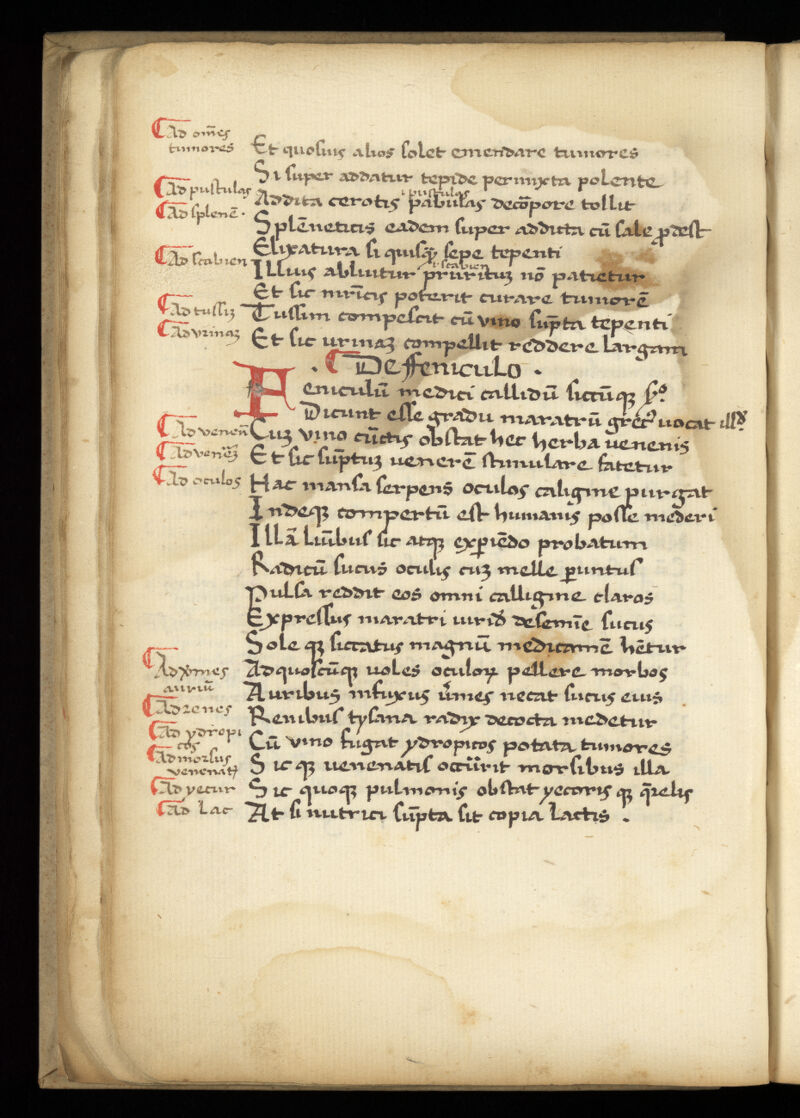 Ad om̄es
tumores
Et quosuis alios solet emendare tumores
Si super addatur tepide permixta polente
Ad pustulas
i pustulas
Addita cerotis pabulas decōpore tollit
Ad splenē.
Splēneticis eadem super addita cū sale ꝓdest
Elixatura si quisq̨ sepe tepenti
Ad scabiem
i scabiem
Illius abluitur prurituꝫ nō patietur
Et sic poterit curare tumorē
Ad tussiꝫ
Tussim compescit cū vino sūpta tepenti
Ad vrinaꝫ
Et sic urinaꝫ compellit reddere largam
. De feniculo .
Feniculū medici callidū siccūqꝫ
Dicunt esse gradu maratrū uocat
Ad venen̄
Cuꝫ vino cūctis obstat hec herba uenenis
Ad venerēꝫ
Et sic sūptuꝫ uenerē stimulare fatetur
Ad oculos
Hac mansa serpens oculos caligine purgat
Indeqꝫ compertū est humanis posse mederi
Illā lūibus sic atqꝫ expiēdo probatum
Radicū sucus oculis cuꝫ melle peruntus
Pulsa reddit eos omni calligine claros
Expressus maratri uirid̄ desemīe sucus
Sole qꝫ siccatus magnū medicamē hētur
Adquoscūqꝫ uoles oculoꝝ pellere morbos
Ad v̄mes
auriū
Auribus infuxus ūmes necat sucus eius
Ad renes
Renibus tysana radix decocta medetur
Ad ydropi
cos
Cū vino fugat ydropicos potata tumores
Ad morsus
venenatꝫ
Sic qꝫ uenenatis occurit morsibus illa
Ad yecur
Sic quoqꝫ pulmonis obstat yecoris qꝫ q̄relis
Ad lac
At si nutrici sūpta sit copia lactis .